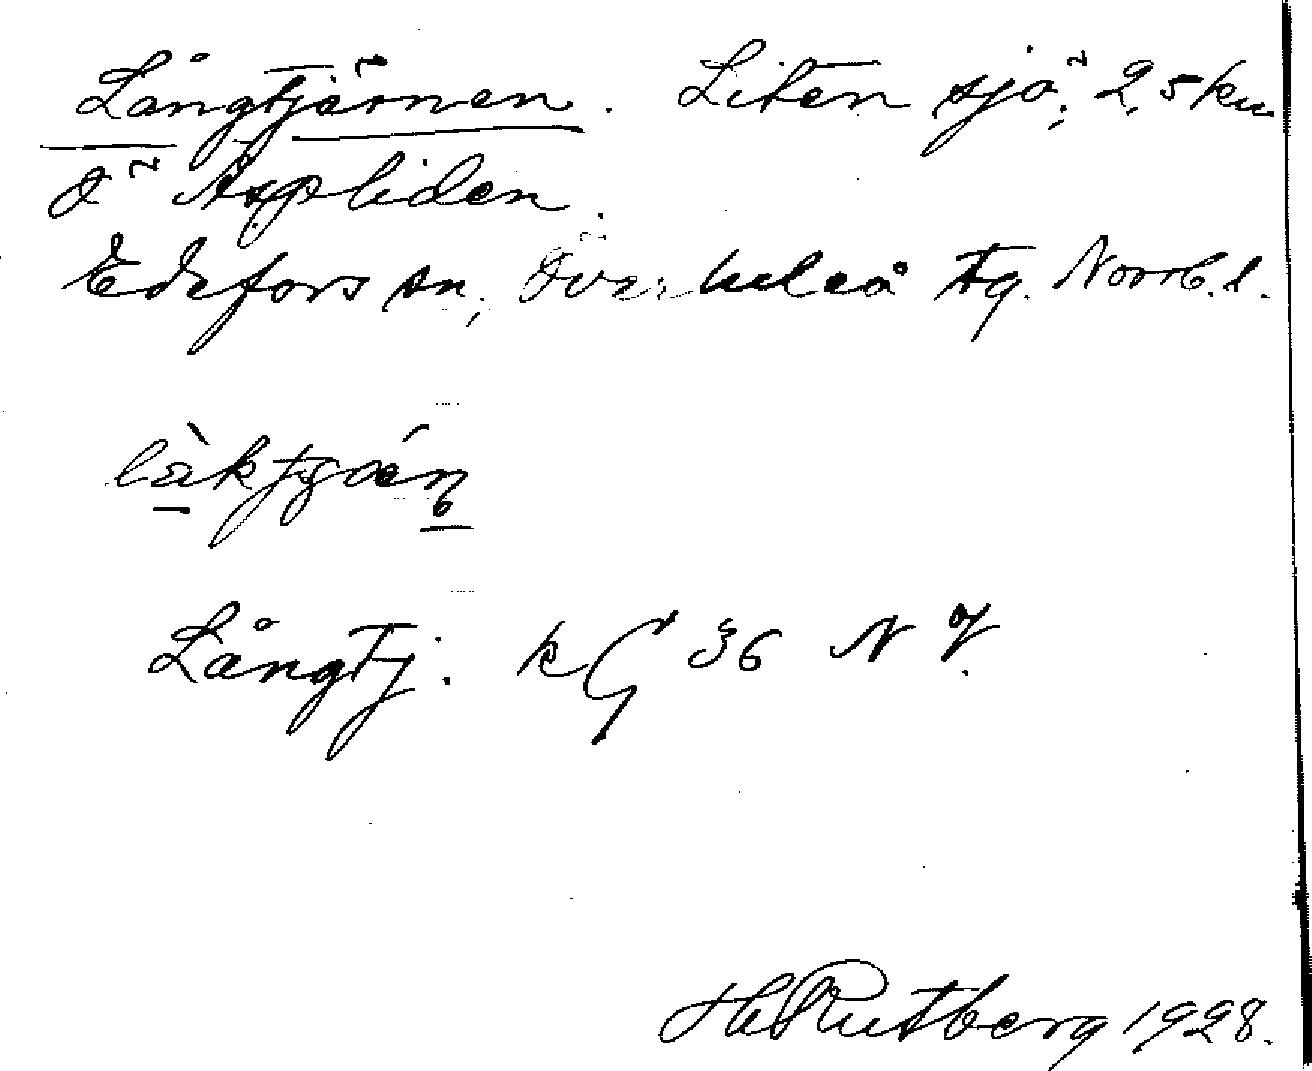 Långtjärnen. Liten sjö; 2,5 km
ö Aspliden.
Edefors sn, Överluleå tg. Norrb. l.
Långtj. kG 36 N Ö.
H Rutberg 1928.